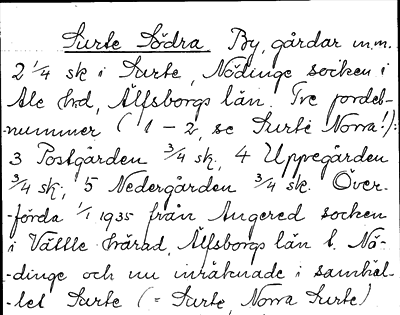 Surte Södra. By, gårdar m.m.
2 1/4 sk i Surte, Nödinge socken i
Ale hrd, Älfsborgs län. Tre jordeb-
-nummer (1 - 2, se Surte Norra!):
3 Postgården 3/4 sk, 4 Uppegården
3/4 sk, 5 Nedergården 3/4 sk. Över-
-förda 1/1 1935 från Angered socken
i Vättle härad, Älfsborgs län t. Nö-
-dinge och nu inräknade i samhäl-
-let Surte (= Surte, Norra Surte)